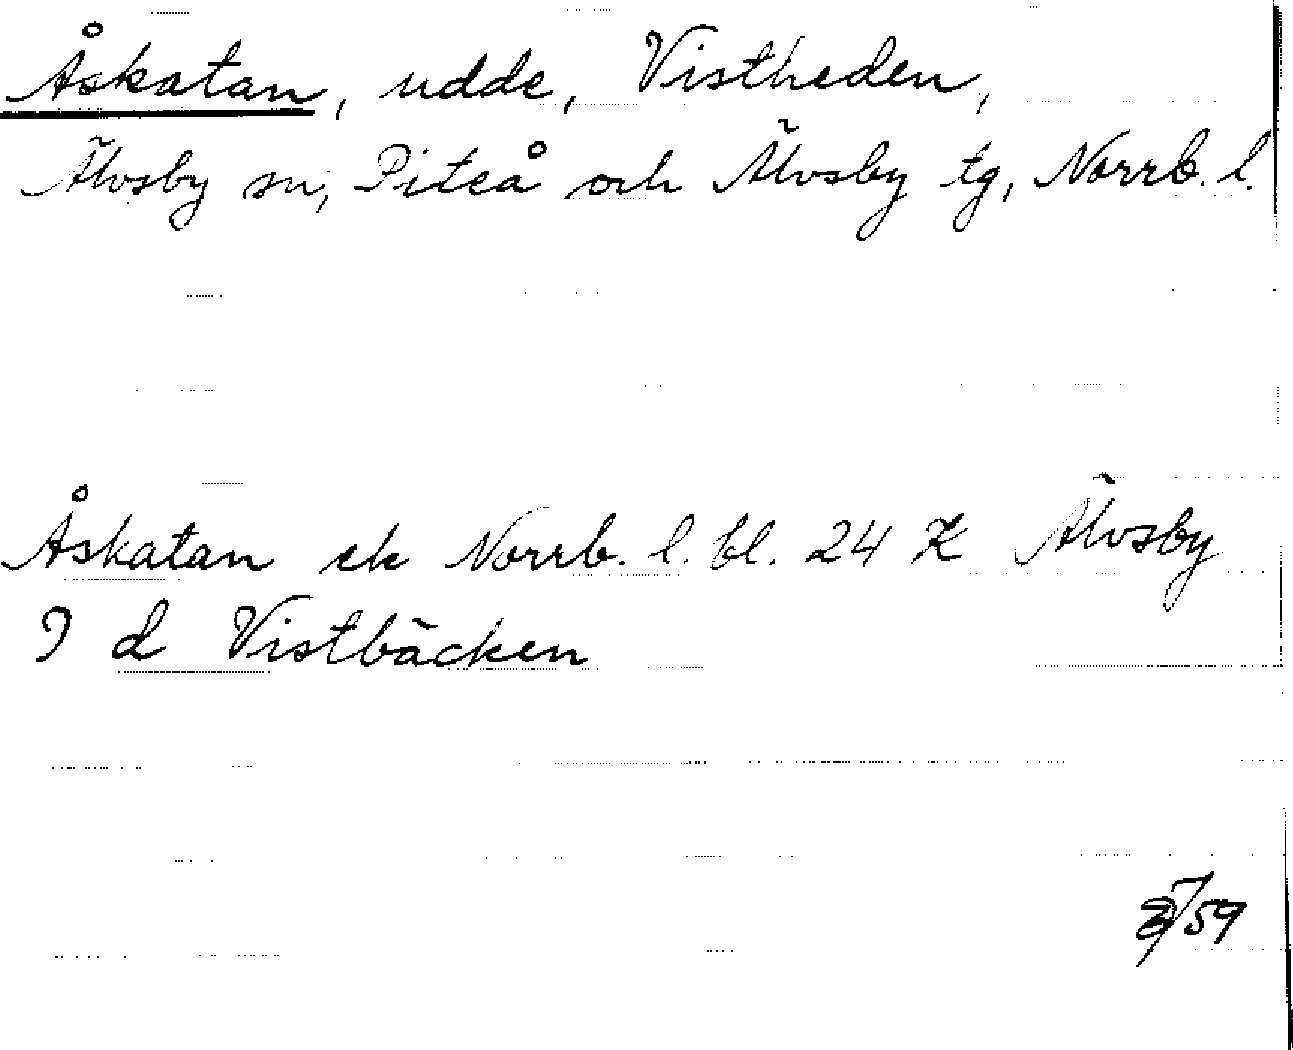 Åskatan, udde, Vistheden,
Älvsby sn, Piteå och Älvsby tg, Norrb. l.
Åskatan ek Norrb. l. bl. 24 Z Älvsby
I d Vistbäcken
59